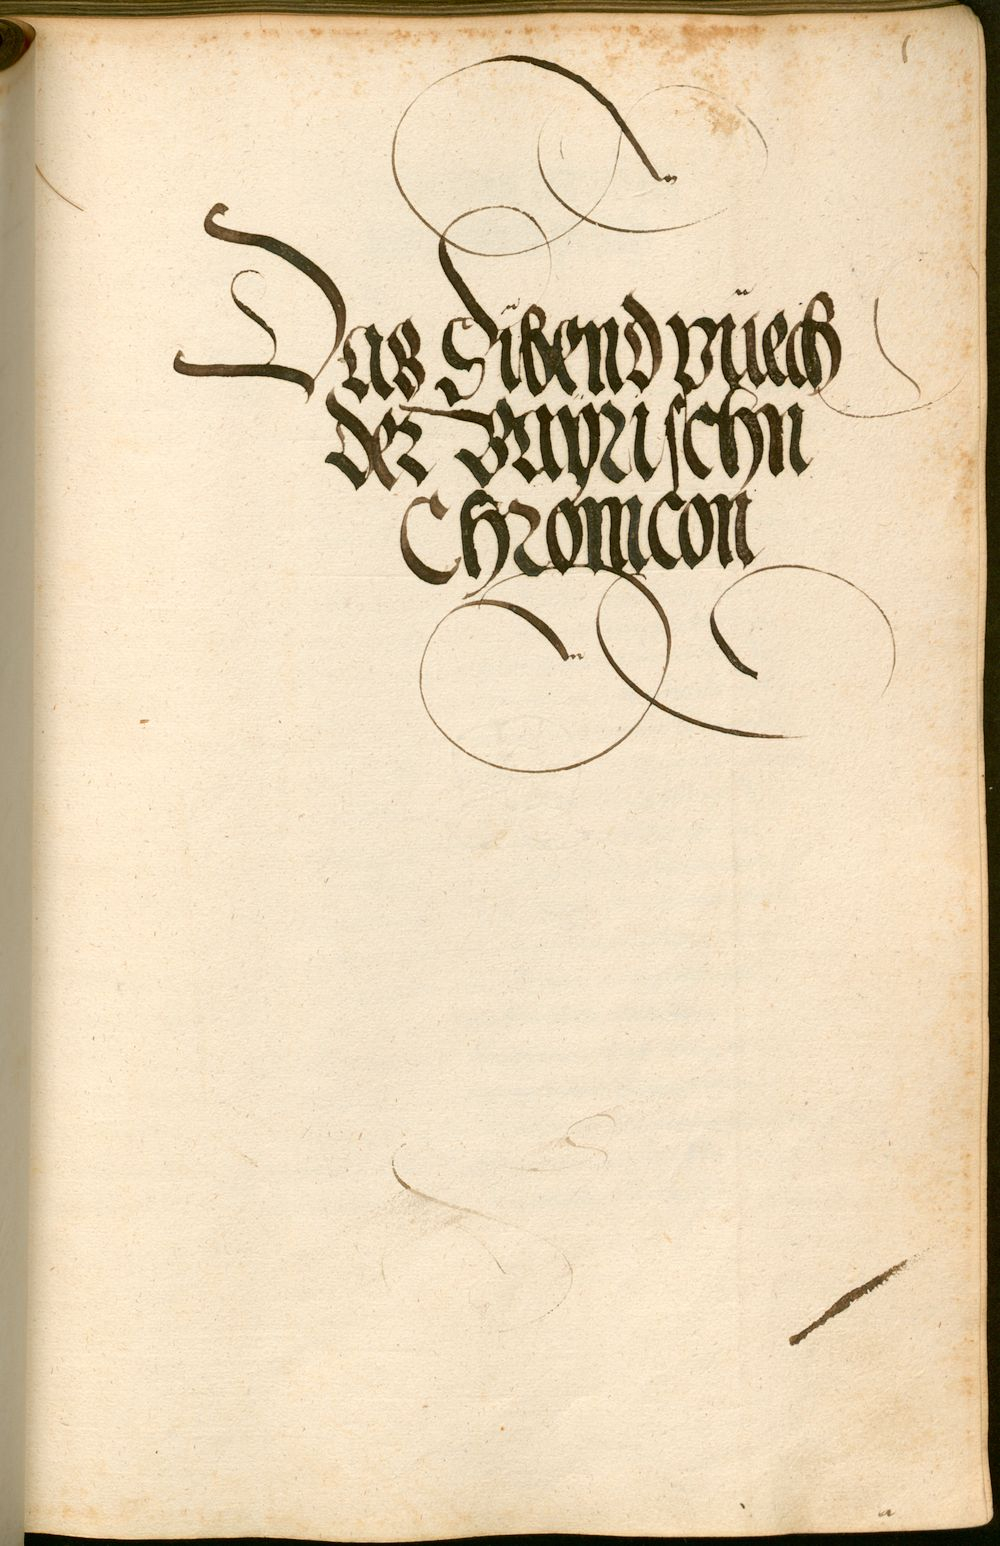 Das Sibend půech
der Bayrischn
Chronicon